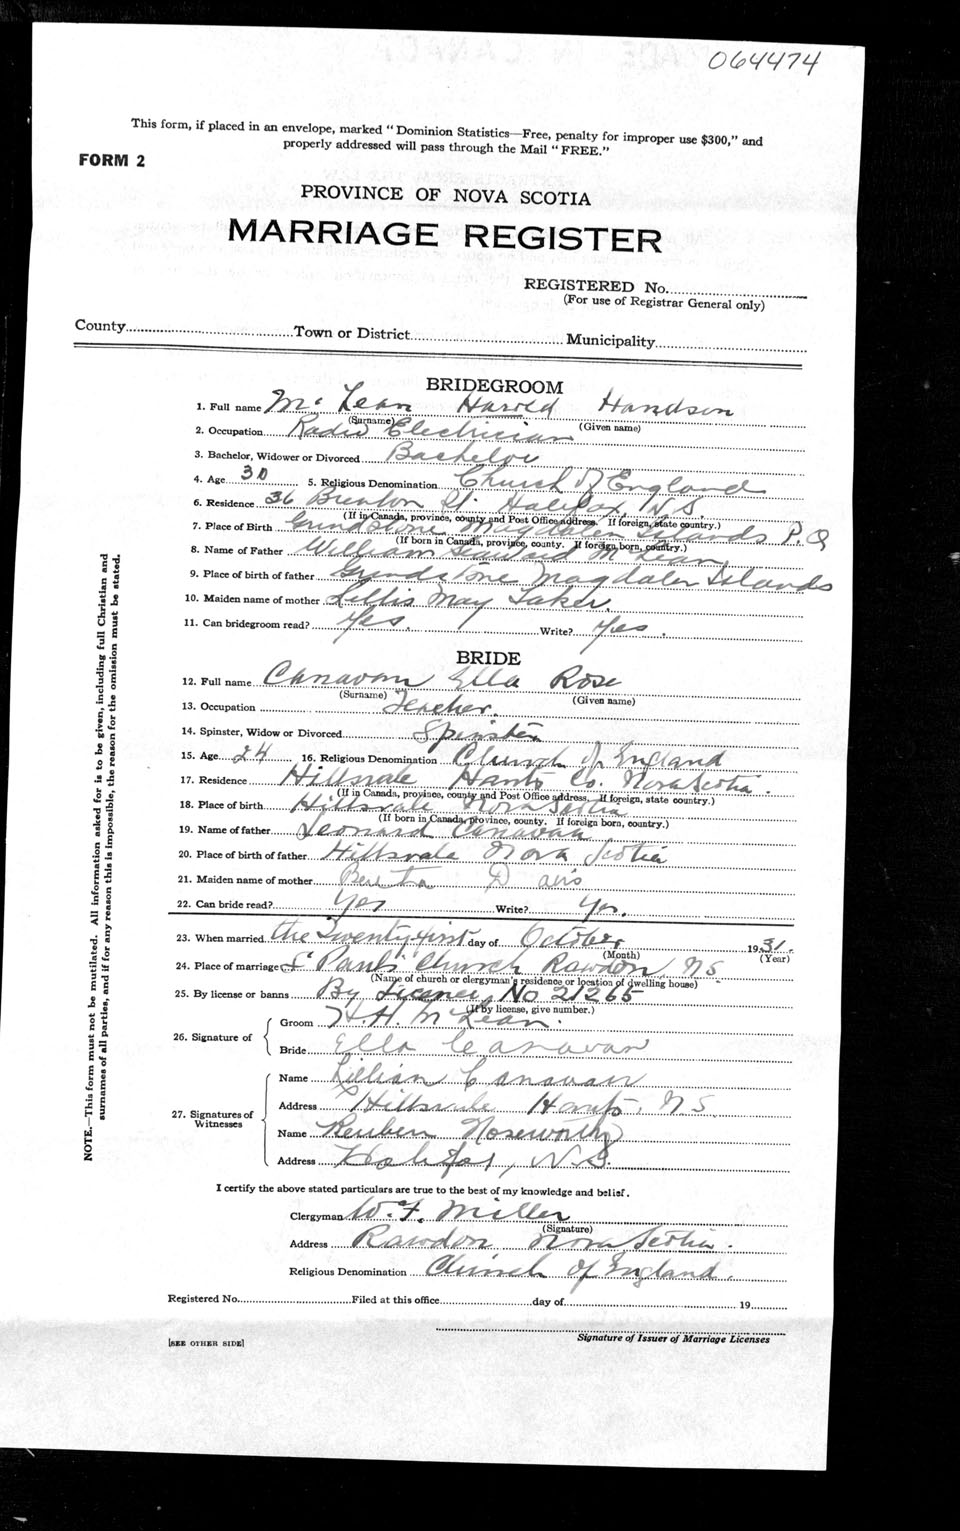 064474
This form, if placed in an envelope, marked "Dominion Statistics—Free, penalty for improper use $300," and
properly addressed will pass through the Mail "FREE."
FORM 2
PROVINCE OF NOVA SCOTIA
MARRIAGE REGISTER
REGISTERED No.
(For use of Registrar General only)
County Town or District Municipality
BRIDEGROOM
1. Full name McLean Harold
(Surname) (Given name)
2. Occupation Radio Electrician
3. Bachelor, Widower or Divorced Bachelor
4. Age 30 5. Religious Denomination Church of England
6. Residence 36 Brenton St. Halifax, N.S.
(If in Canada, province, county and Post Office address. If foreign, state country.)
7. Place of Birth Grindstone Magdalen Islands P.Q
(If born in Canada, province, county. If foreign born, country.)
8. Name of Father William McLean
9. Place of birth of father Grindstone Magdalen Islands
10. Maiden name of mother May
11. Can bridegroom read? Yes. Write? Yes.
BRIDE
12. Full name Canavan Ella Rose
(Surname) (Given name)
13. Occupation Teacher.
14. Spinster, Widow or Divorced Spinster
15. Age 24 16. Religious Denomination Church of England
17. Residence Hillsvale Hants Co. Nova Scotia.
(If in Canada, province, county and Post Office address, If foreign, state country.)
18. Place of birth Hillsvale Nova Scotia
(If born in Canada, province, county. If foreign born, country.)
19. Name of father Leonard Canavan
20. Place of birth of father Hillsvale Nova Scotia
21. Maiden name of mother Davis
22. Can bride read? Yes Write? Yes.
23. When married the Twenty first day of October 1931.
(Month) (Year)
24. Place of marriage St Paul's Church Rawdon, NS
(Name of church or clergyman's residence or location of dwelling house)
25. By license or banns By License, No 21265
(If by license, give number.)
26. Signature of
Groom H.H. McLean.
Bride Ella Canavan
27. Signatures of
Witnesses
Name Lillian Canavan
Address Hillsvale Hants, NS
Name Reuben Noseworthy
Address Halifax, N.S.
I certify the above stated particulars are true to the best of my knowledge and belief.
Clergyman W. F. Miller
(Signature)
Address Rawdon Nova Scotia.
Religious Denomination Church of England.
Registered No. Filed at this office day of 19
Signature of Issuer of Marriage Licenses
[SEE OTHER SIDE]
NOTE.—This form must not be mutilated. All information asked for is to be given, including full Christian and
surnames of all parties, and if for any reason this is impossible, the reason for the omission must be stated.